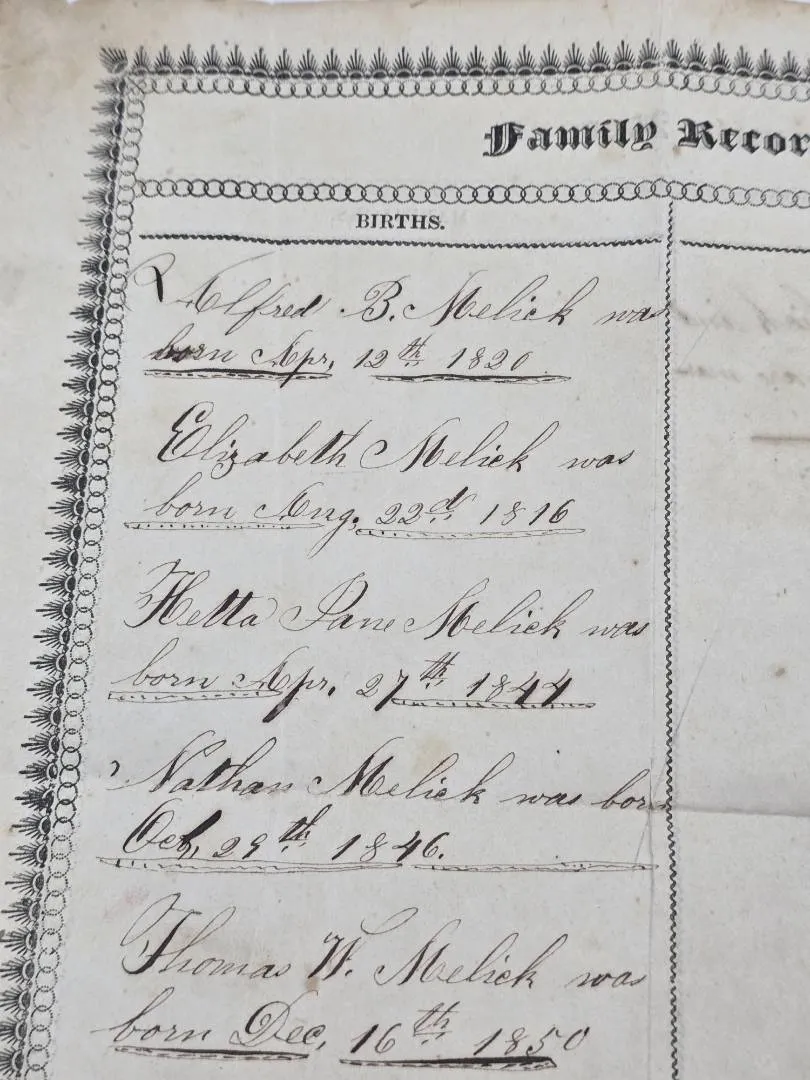 Family Recor
BIRTHS.
Alfred B. Melick was
born Apr. 12th 1820
Elizabeth Melick was
born Aug. 22d 1816
Hetta Jane Melick was
born Apr. 27th 1844
Nathan Melick was born
Oct, 29th 1846.
Thomas W. Melick was
born Dec, 16th 1850